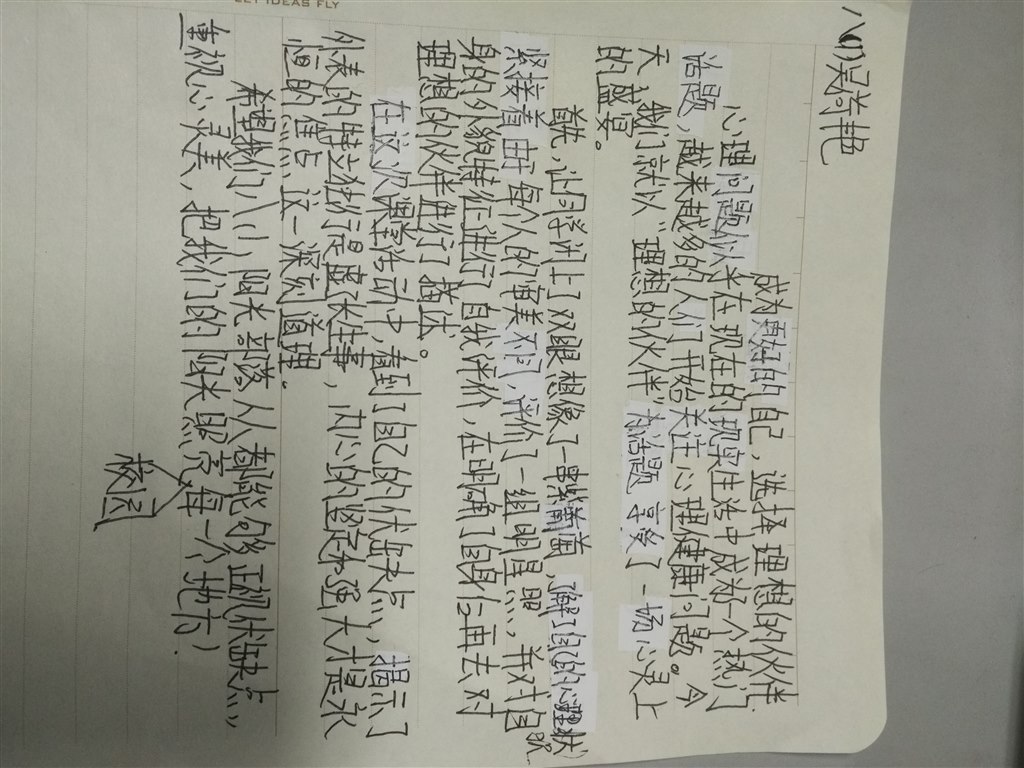 LET IDEAS FLY
八(1)吴诗艳
成为更好的自己，选择理想的伙伴
心理问题似乎在现在的现实生活中成为一个热门
话题，越来越多的人们开始关注心理健康问题。今
天，我们就以“理想的伙伴”为话题享受了一场心灵上
的盛宴。
首先，让同学闭上了双眼想像了一串紫葡萄，了解了自己的心理状况
紧接着由每个人的审美不同，评价了一组明星照，并对自
身的外貌特征进行自我评价，在明确了自身后再去对
理想的伙伴进行描述。
在这次课堂活动中，看到了自己的优缺点，揭示了
外表的特立独行是整张往事，内心的坚定和强大才是永
恒的焦点，这一深刻道理。
希望我们八(1)阳光部落人人都能够正视优缺点，
重视心灵美，把我们的阳光照亮每一个地方！
校园